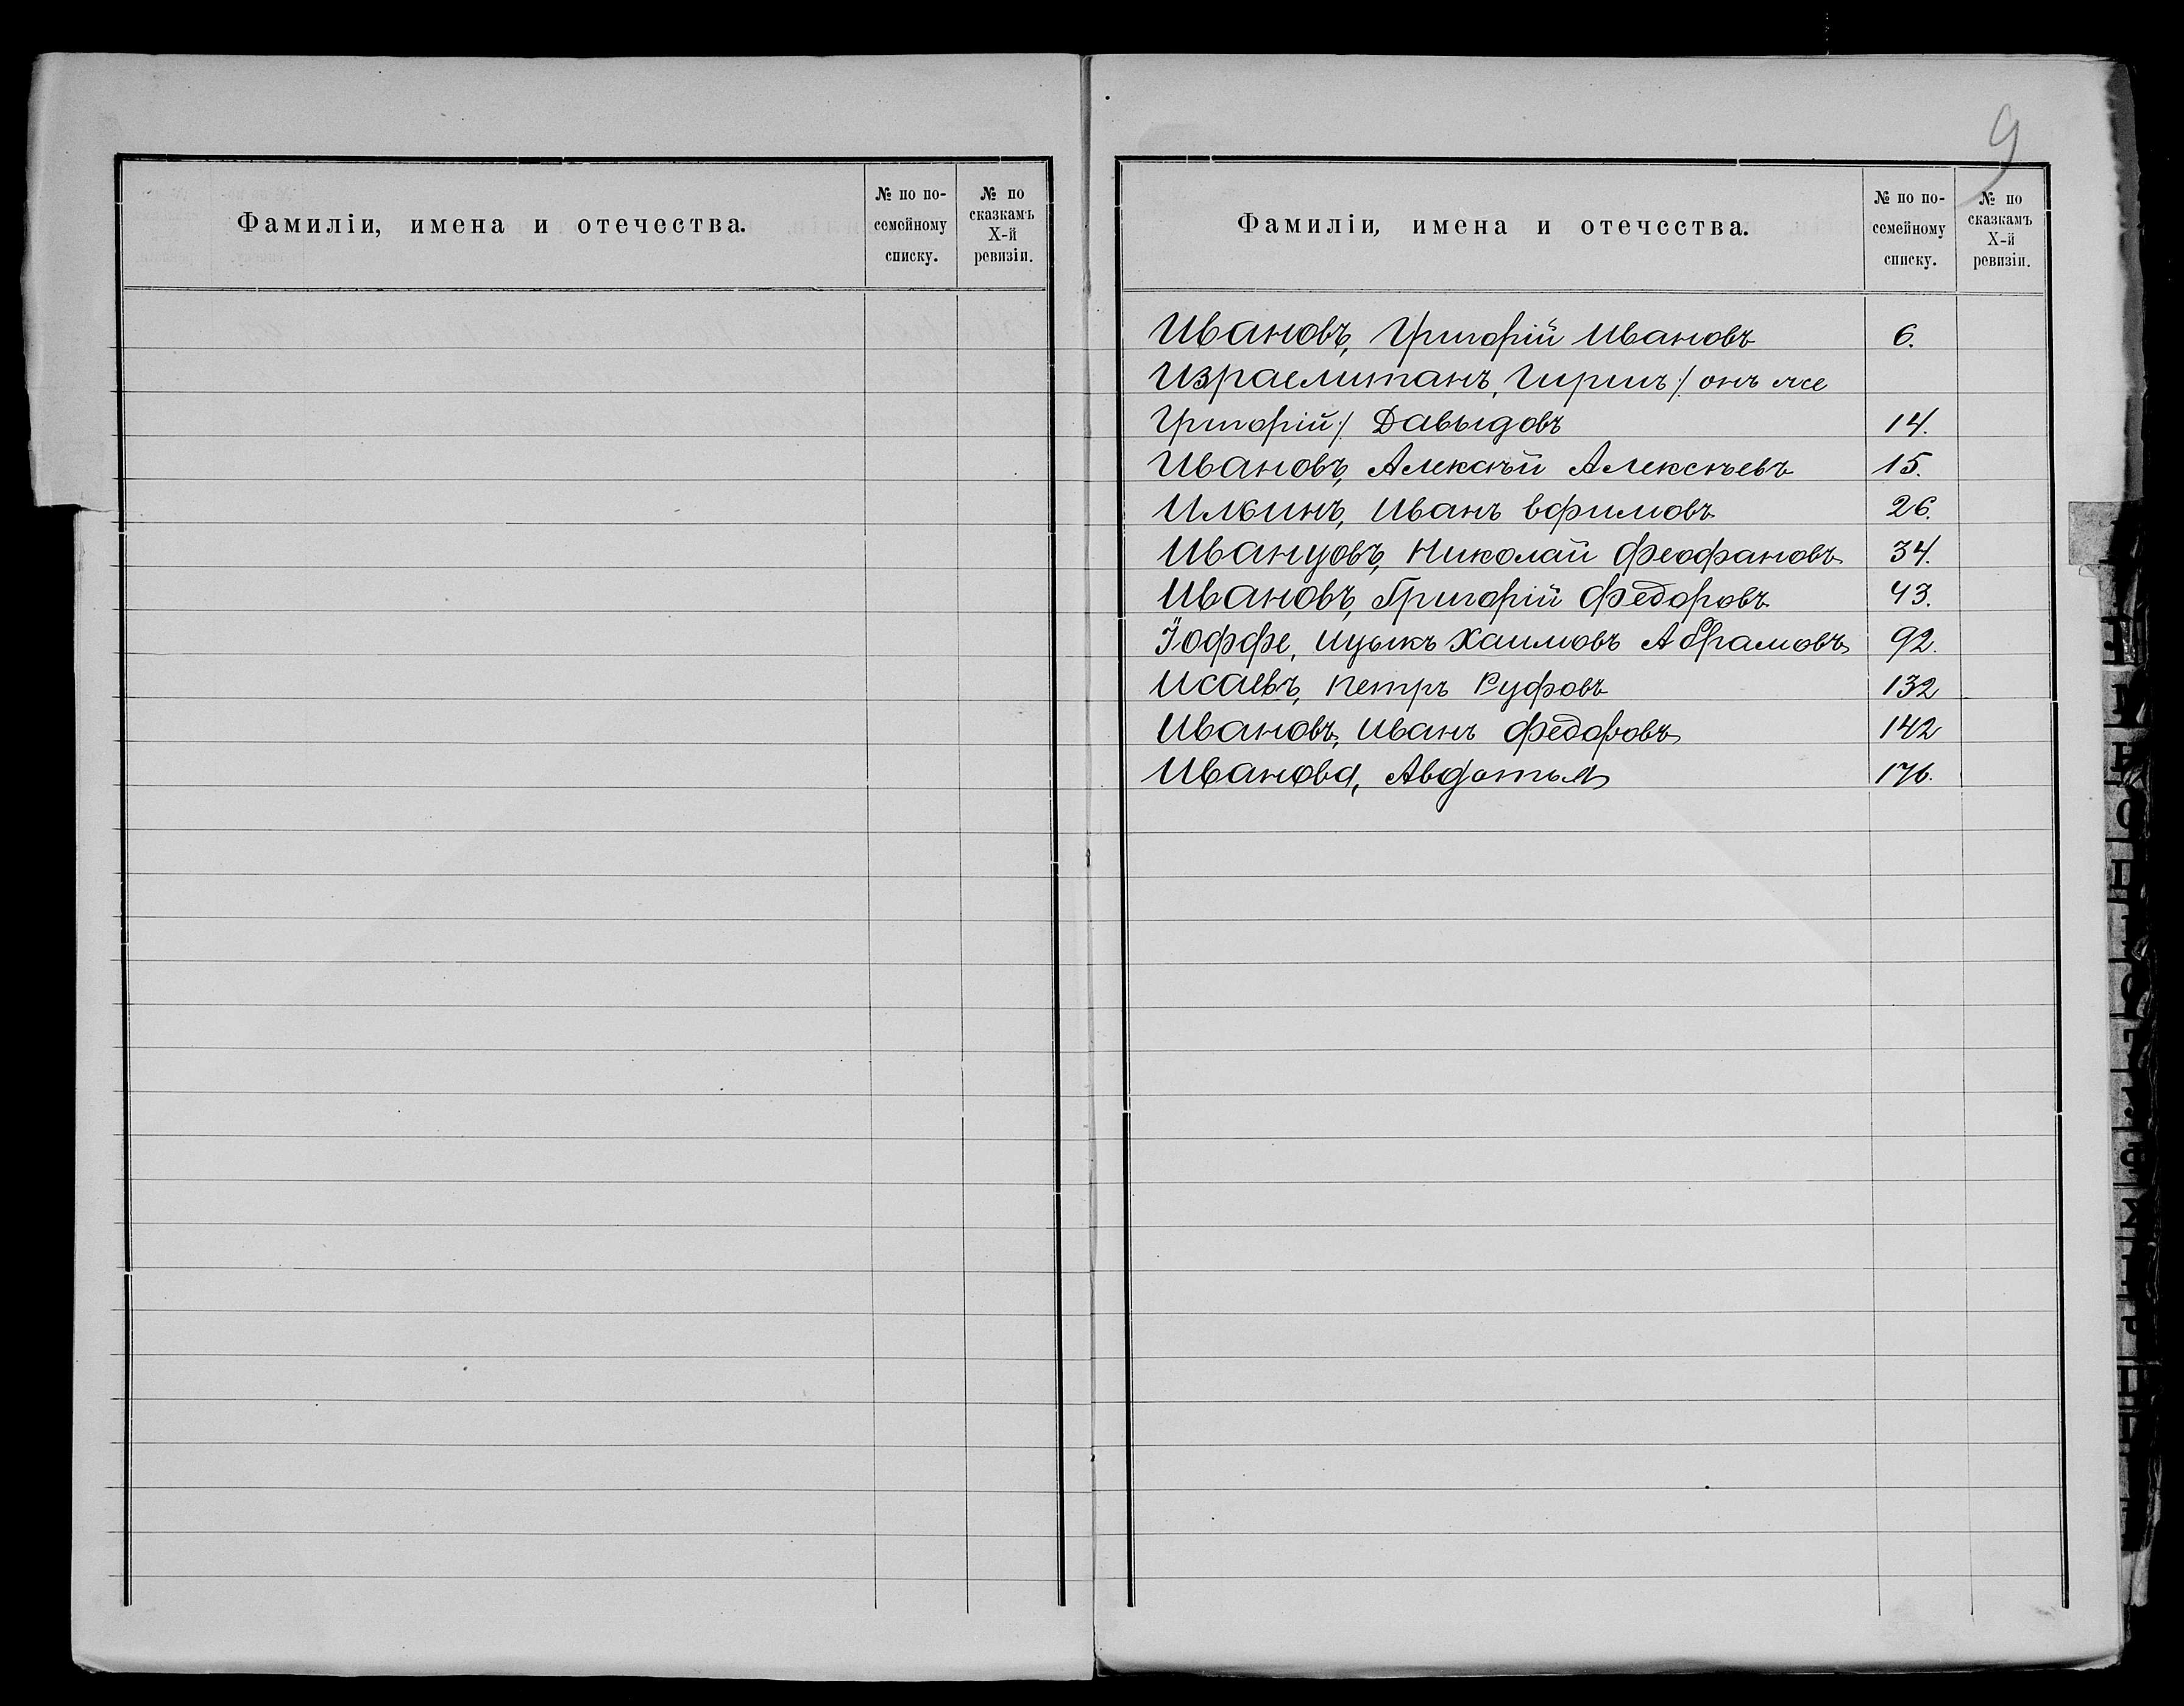 Фамиліи, имена и отечества.
№ по по-
семейному
списку.
№ по
сказкамъ
X-й
ревизіи.
9
Фамиліи, имена и отечества.
№ по по-
семейному
списку.
№ по
сказкамъ
X-й
ревизіи.
Ивановъ, Григорій Ивановъ 6.
Израелитанъ, Гиршъ /: онъ же
Григорій :/ Давыдовъ 14.
Ивановъ, Алексѣй Алексѣевъ 15.
Илькинъ, Иванъ Ефимовъ 26.
Иванцовъ, Николай Феофановъ 34.
Ивановъ, Григорій Федоровъ 43.
Іоффе, Ицыкъ Хаимовъ Абрамовъ 92.
Исаевъ, Петръ Руфовъ 132
Ивановъ, Иванъ Федоровъ 142
Иванова, Авдотья 176.